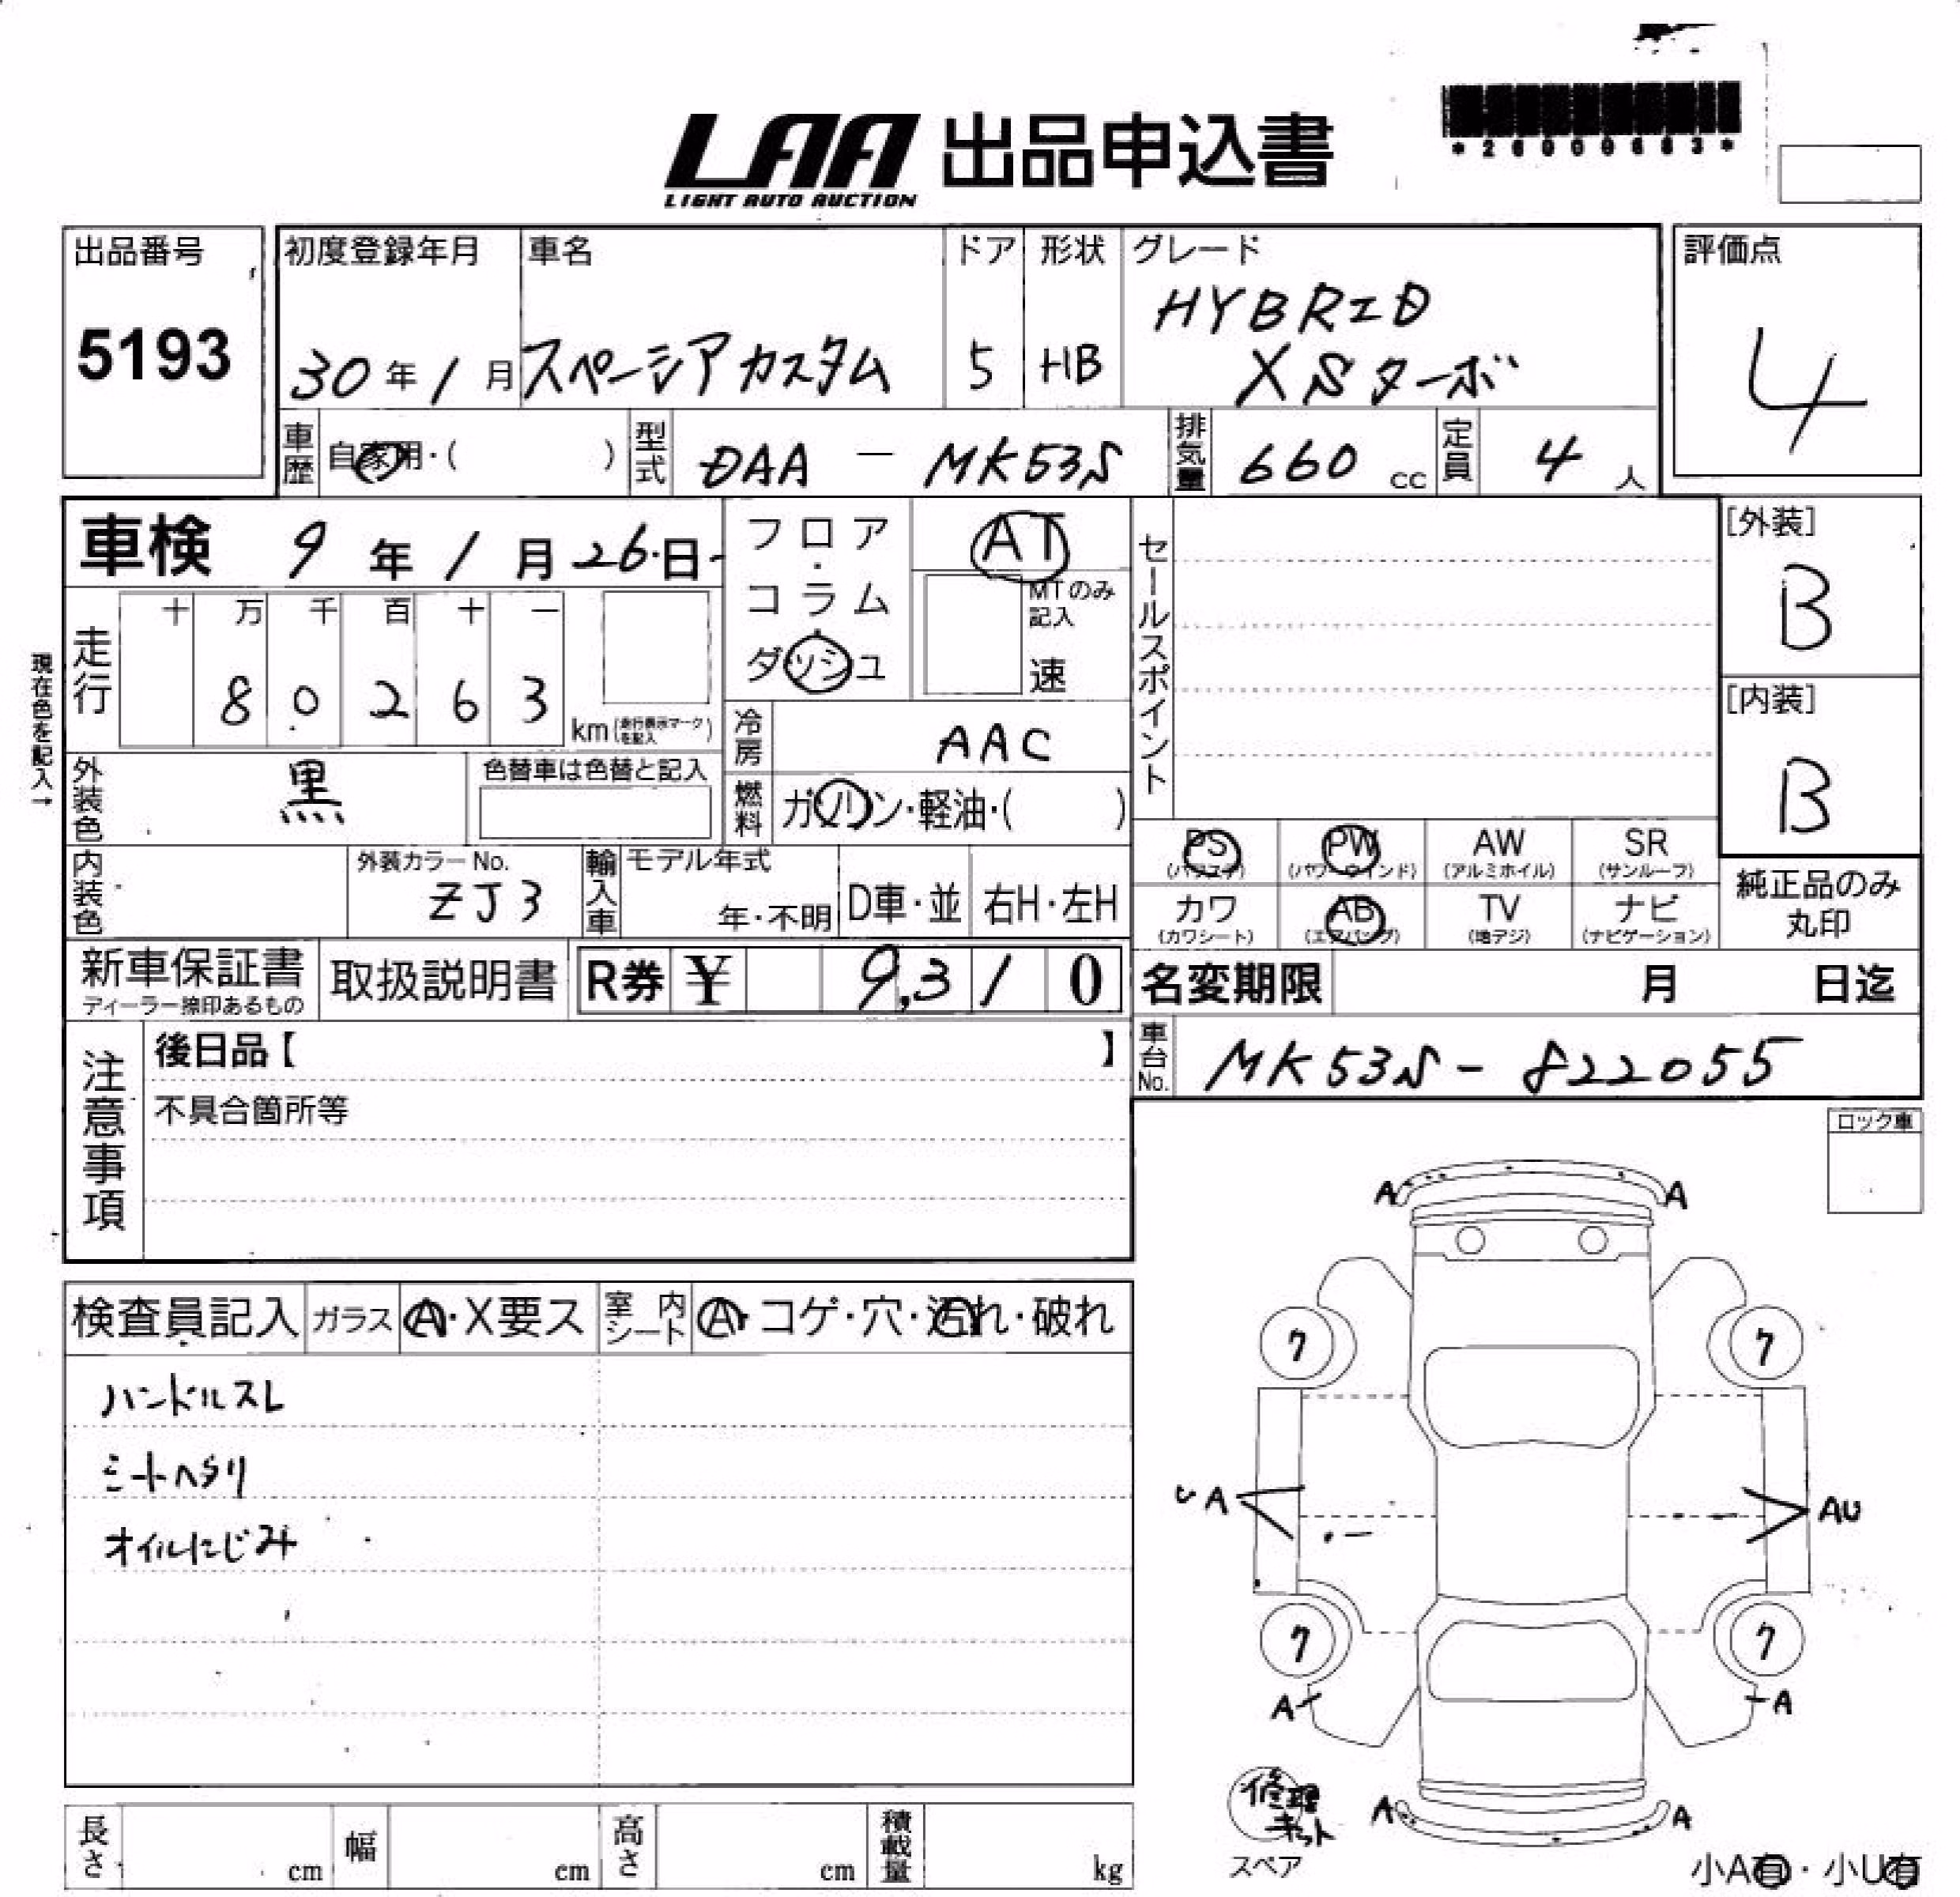 *26000683*
LAA 出品申込書
LIGHT AUTO AUCTION
出品番号
5193
初度登録年月
30年1月
車名
スペーシアカスタム
ドア
5
形状
HB
グレード
HYBRID
XSターボ
評価点
4
車歴
自家用・( )
型式
DAA - MK53S
排気量
660 cc
定員
4人
車検 9年1月26日
フロア・コラム・ダッシュ
AT
MTのみ記入
速
セールスポイント
[外装]
B
[内装]
B
現在色を記入→
走行
十 万 千 百 十 一
8 0 2 6 3
km(走行表示マークを記入)
冷房
AAC
外装色
黒
色替車は色替と記入
燃料
ガソリン・軽油・( )
内装色
外装カラーNo.
ZJ3
輸入車
モデル年式
年・不明
D車・並
右H・左H
PS
(パワステ)
PW
(パワーウインド)
AW
(アルミホイル)
SR
(サンルーフ)
カワ
(カワシート)
AB
(エアバッグ)
TV
(地デジ)
ナビ
(ナビゲーション)
純正品のみ
丸印
新車保証書
ディーラー捺印あるもの
取扱説明書
R券 ¥ 9,310
名変期限 月 日迄
注意事項
後日品【 】
不具合箇所等
車台No.
MK53S - 822055
ロック車
検査員記入
ガラス
A・X要ス
室内シート
A・コゲ・穴・汚れ・破れ
ハンドルスレ
シートヘタリ
オイルにじみ
A A
ク ク
A AU
ク ク
A A
A A
修理
キット
スペア
小A有・小U有
長さ cm
幅 cm
高さ cm
積載量 kg